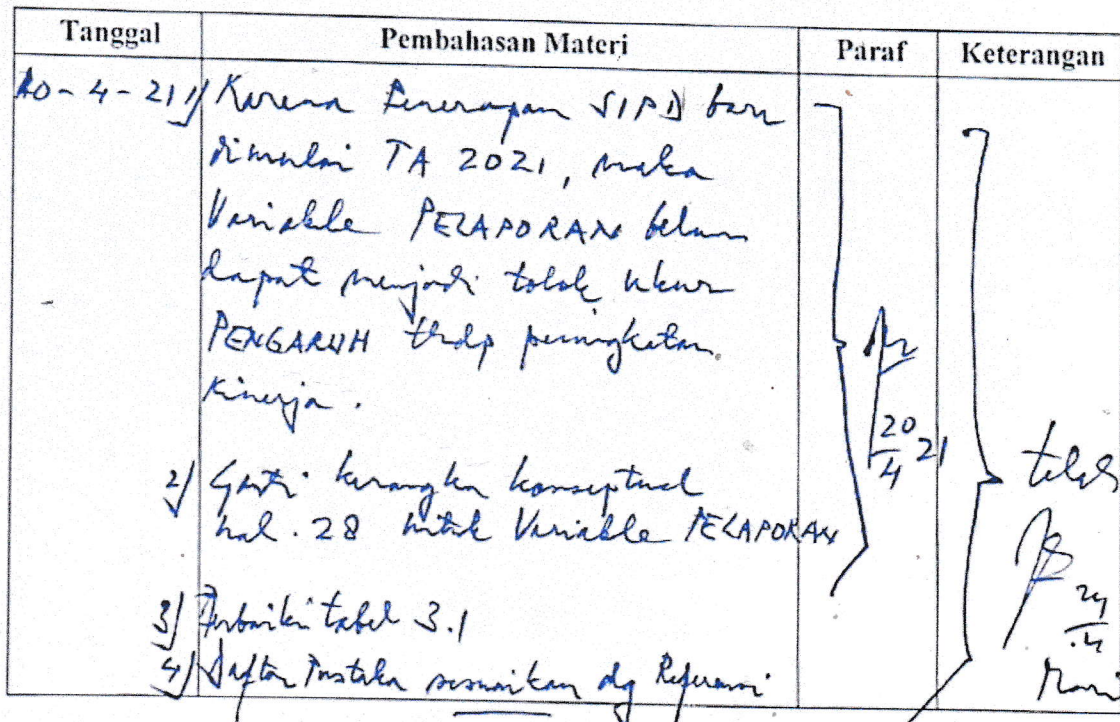 Tanggal Pembahasan Materi Paraf Keterangan
20-4-21 1/ Karena Penerapan SIPD baru
dimulai TA 2021, maka
Variable PELAPORAN belum
dapat menjadi tolok ukur
PENGARUH thdp peningkatan
Kinerja.
2/ Ganti kerangka konseptual
hal. 28 untuk Variable PELAPORAN
3/ Perbaiki tabel 3.1
4/ Daftar Pustaka sesuaikan dg Referensi
20/4 21
telah